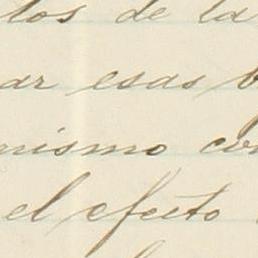 tos de la
ar esas
mismo con
el efecto